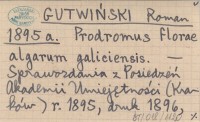 GUTWIŃSKI Roman
1895 a. Prodromus Florae
algarum galiciensis. —
Sprawozdania z Posiedzeń
Akademii Umiejętności (Kra-
ków) r. 1895, druk 1896,